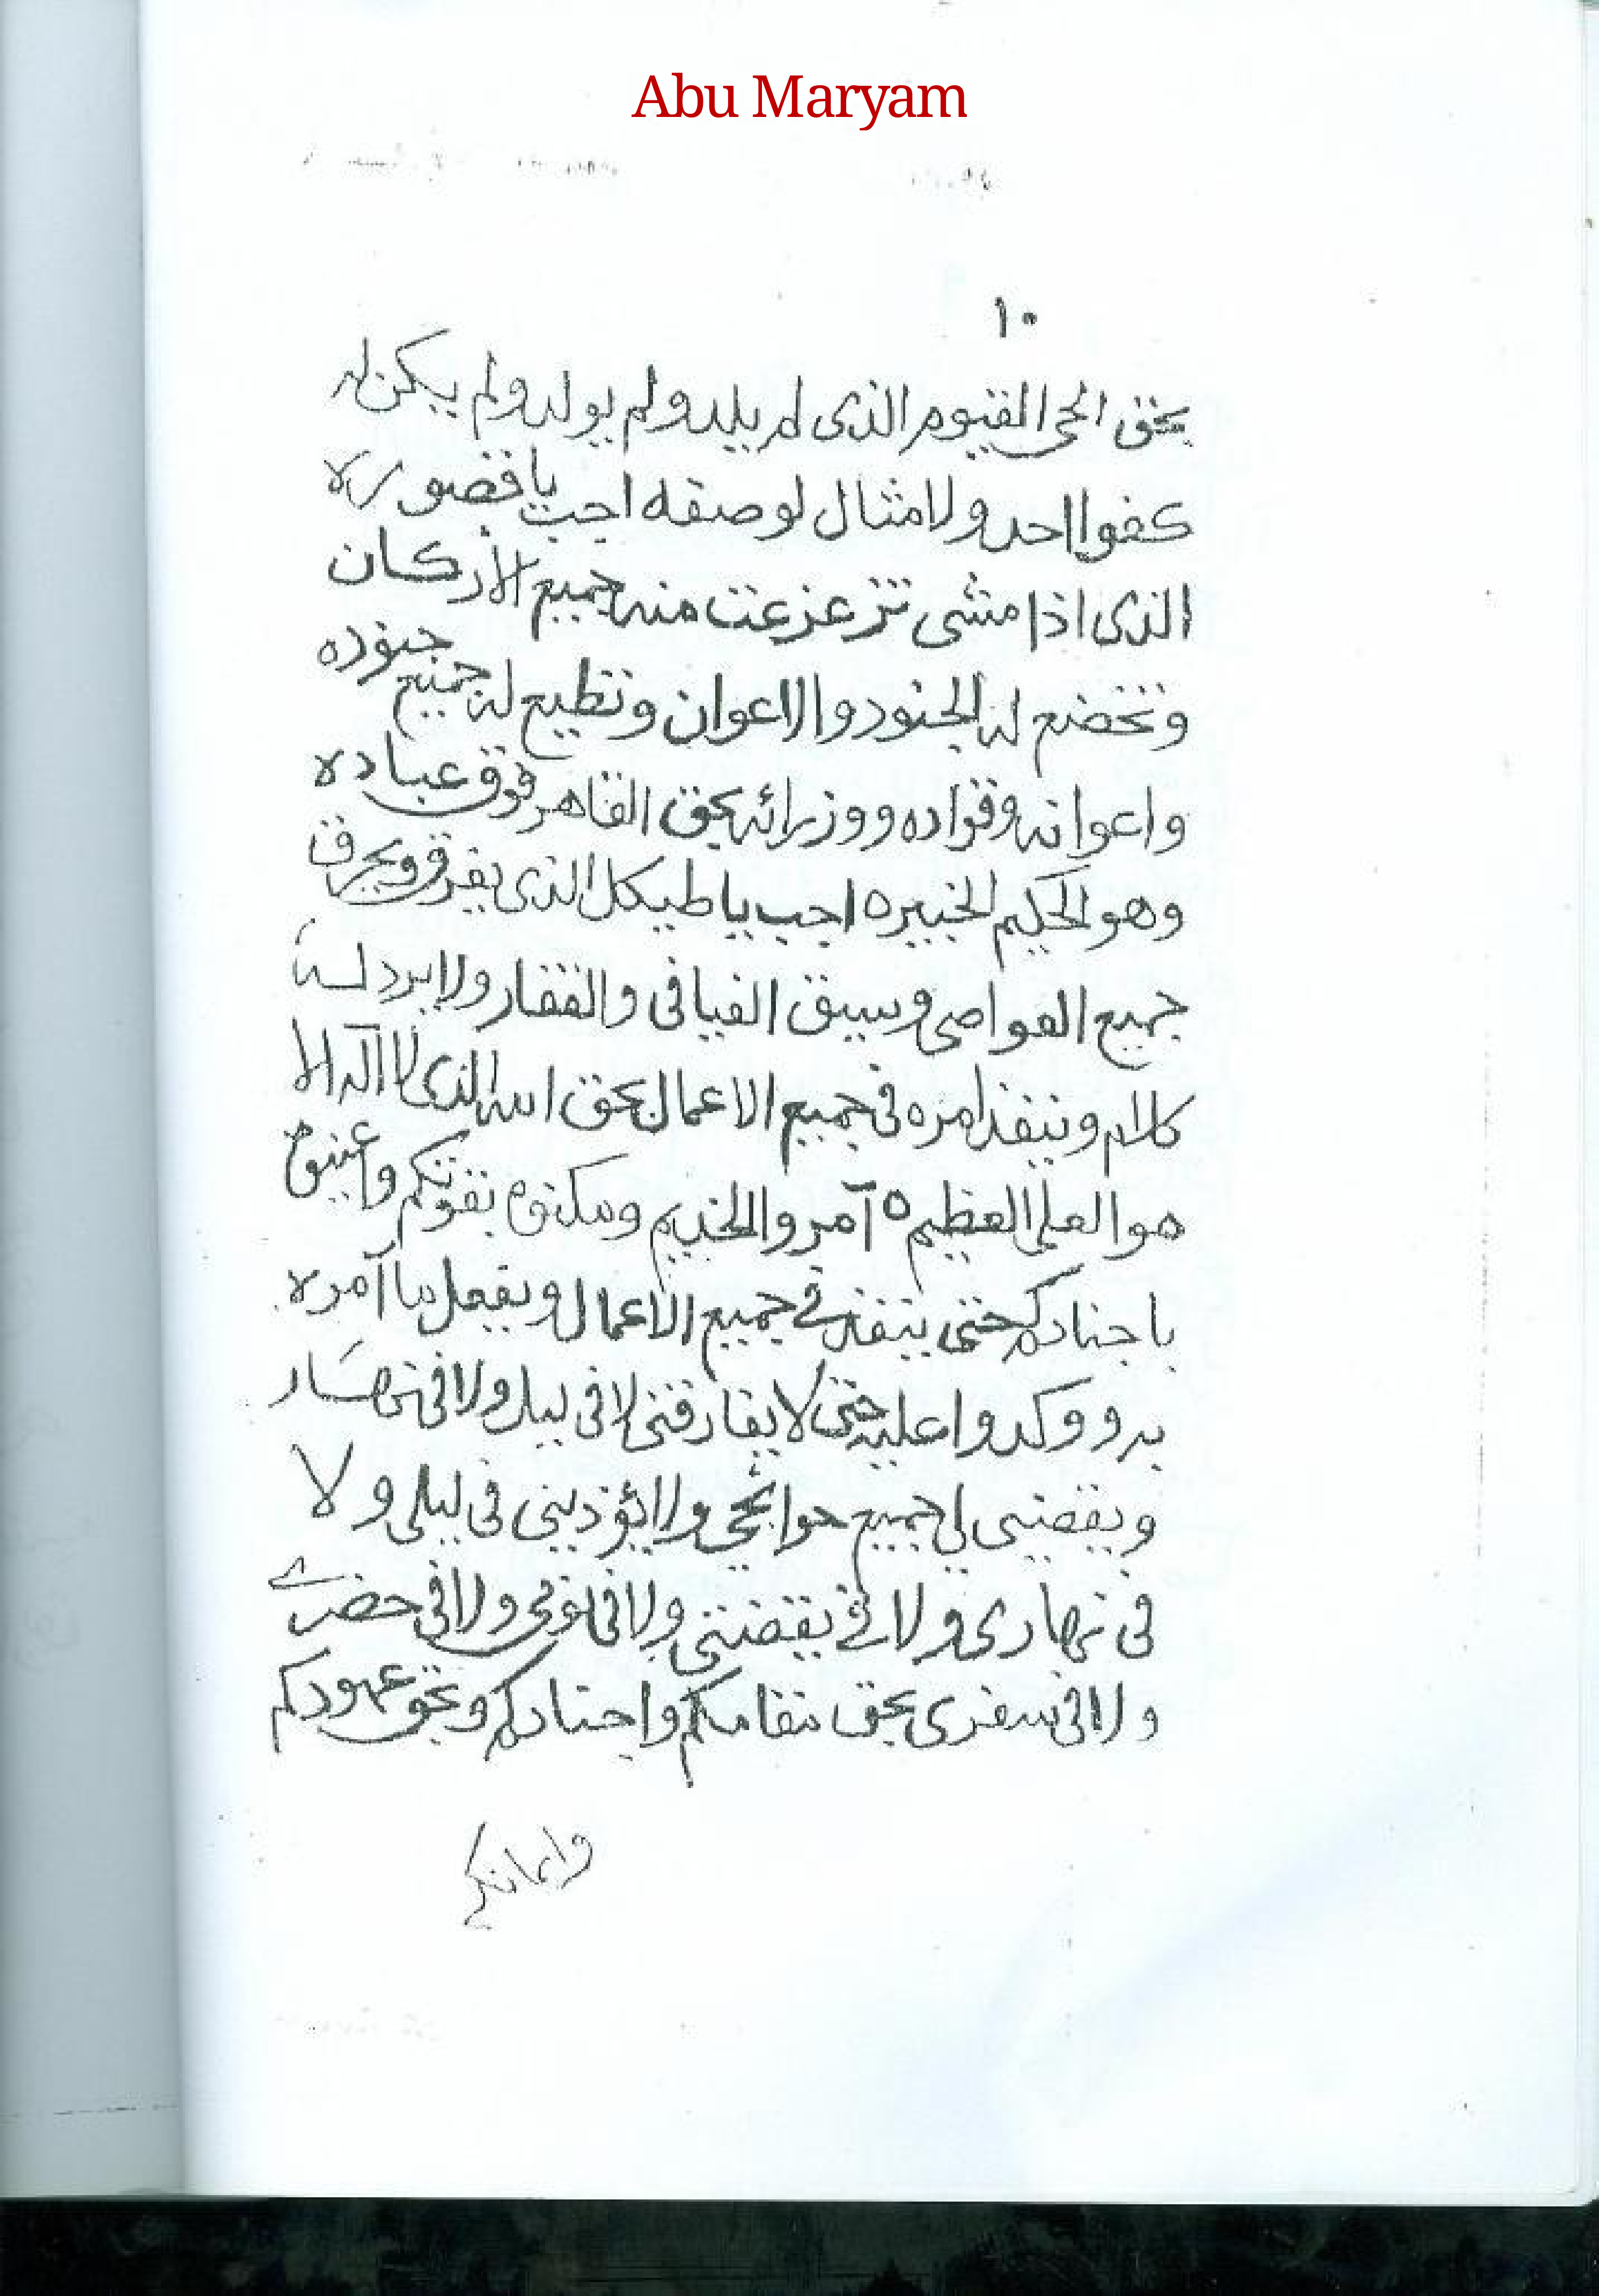 Abu Maryam
١٠
بحق الحى القيوم الذى لم يلد ولم يولد ولم يكن له
كفوا احد ولا مثال لوصفه اجب يا قصوره
الذى اذا مشى تزعزعت منه جميع الأركان
وتخضع له الجنود والاعوان وتطيع له جميع جنوده
واعوانه وقواده ووزرائه بحق القاهر فوق عباده
وهو الحكيم الخبيره اجب يا طيكل الذى يفرق ويحرق
جميع العواصى وسيق الفيافى والقفار ولا يرد لـه
كلام وينفذ امره فى جميع الاعمال بحق الله الذى لا اله الا
هو العلى العظيم ٥ آمروا الخديم ومكنوه بقوتكم واعينوه
باجنادكم حتى ينفذ فى جميع الاعمال ويفعل ما آمره
به ووكدوا عليه حتى لا يفارقنى لا فى ليل ولا فى نهار
ويقضى لى جميع حوائجى ولا يؤذينى فى ليلى ولا
فى نهارى ولا فى يقضتى ولا فى نومى ولا فى حضرى
ولا فى سفرى بحق مقامكم واجنادكم وبحق عهودكم
وايمانكم